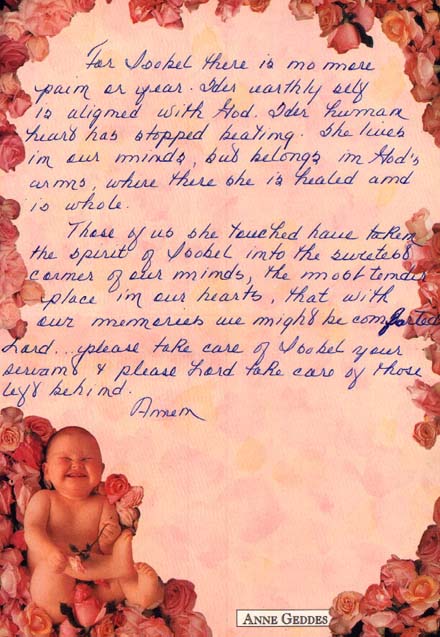 For Isobel there is no more
pain or year. Her earthly self
is aligned with God. Her human
heart has stopped beating. She lives
in our minds, but belongs in God's
arms, where there she is healed and
is whole.
Those of us she touched have taken
the spirit of Isobel into the sweetest
corner of our minds, the most tender
place in our hearts, that with
our memories we might be comforted
Lord... please take care of Isobel your
servant & please Lord take care of those
left behind.
Amen
ANNE GEDDES